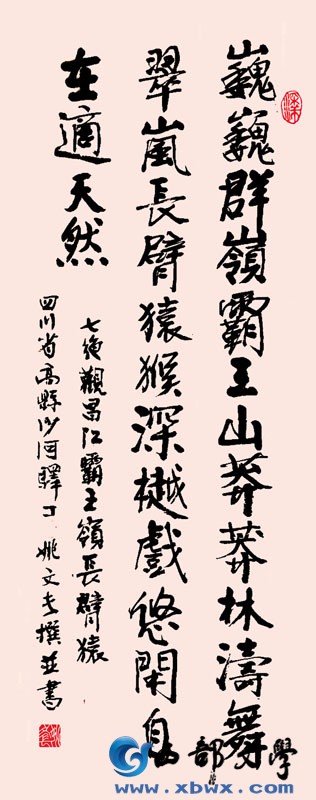 巍巍群嶺霸王山莽莽林濤舞
翠嵐長臂猿猴深樾戲悠閑自
在適天然
七絕觀昌江霸王嶺長臂猿
四川省高縣沙河驛口 姚文長撰並書
學部
www.xbwx.com